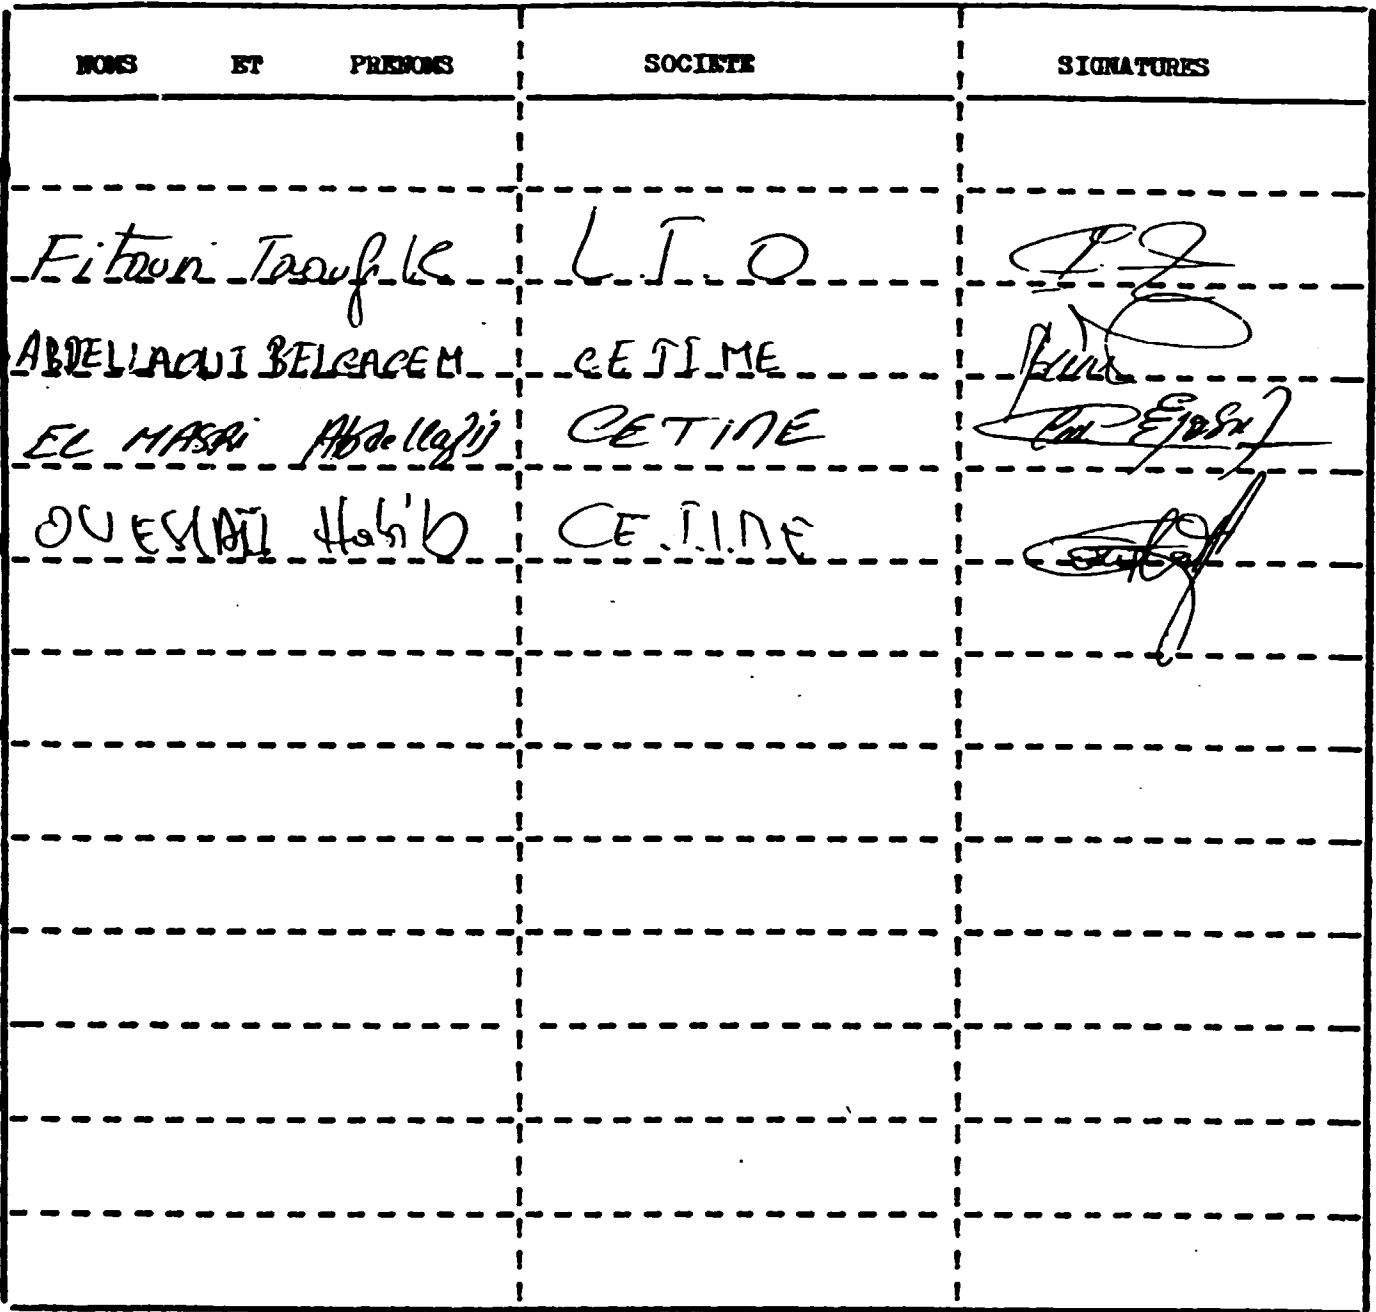 NOMS ET PRENOMS SOCIETE SIGNATURES
Fitouri Taoufik L.T.O
ABDELLAOUI BELGACEM CETIME
EL MASRI Abdellaziz CETIME
Habib CETIME